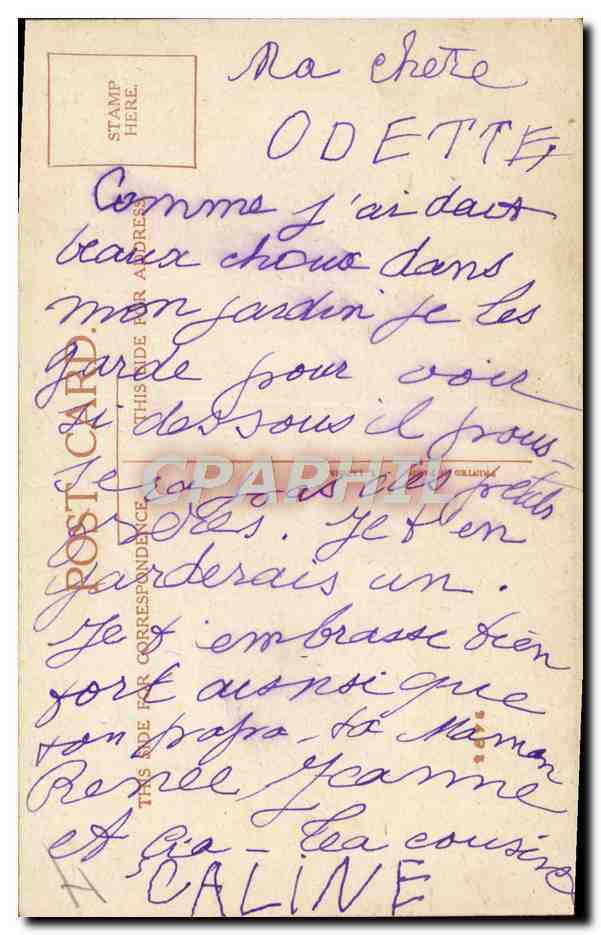 Ma chere
ODETTE
Comme j'ai daut
beaux choux dans
mon jardin je les
garde pour voir
si dessous il pous-
sera pas des petits
Je t'en
garderais un.
Je t'embrasse bien
fort ausnsi que
ton papa - ta Maman
Renée Jeanne
et - Ta cousine
CALINE
STAMP
HERE.
POST CARD.
THIS SIDE FOR ADDRESS
THIS SIDE FOR CORRESPONDENCE
CPARPHIL